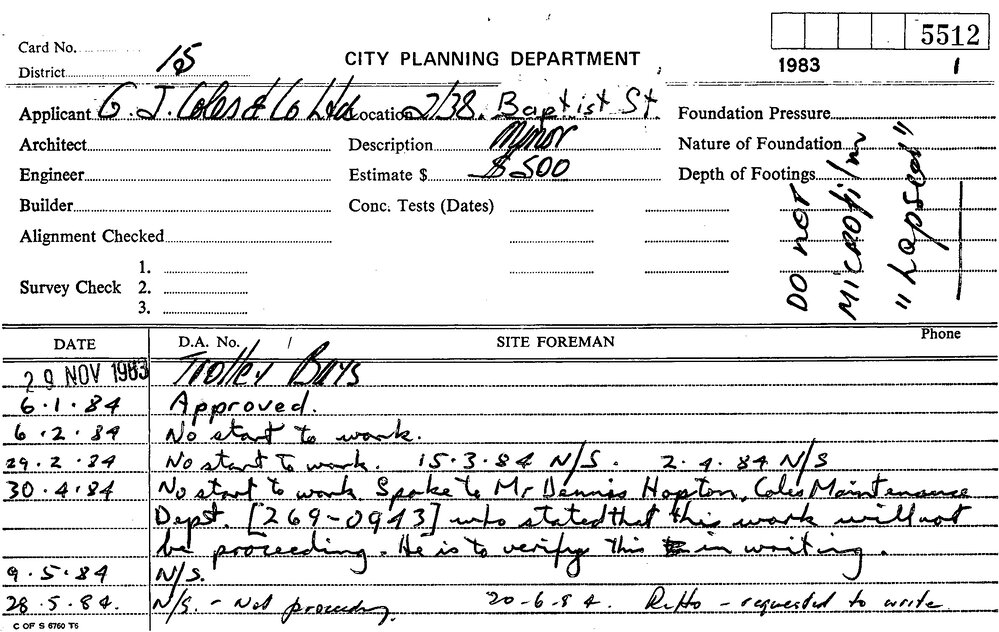 5512
Card No.
District 15
CITY PLANNING DEPARTMENT
1983 1
Applicant G. J. Coles & Co Ltd Location 2/38. Baptist St. Foundation Pressure
Architect Description Minor Nature of Foundation
Engineer Estimate $ $500 Depth of Footings
Builder Conc. Tests (Dates)
Alignment Checked
1.
Survey Check 2.
3.
DO NOT
MICROFILM
"Lapsed"
DATE D.A. No. SITE FOREMAN Phone
29 NOV 1983 Trolley Bays
6.1.84 Approved.
6.2.84 No start to work.
29.2.84 No start to work. 15.3.84 N/S. 2.4.84 N/S
30.4.84 No start to work. Spoke to Mr Dennis Hopton, Coles Maintenance
Dept. [269-0943] who stated that this work will not
be proceeding. He is to verify this in writing.
9.5.84 N/S.
28.5.84. N/S. - Not proceeding 20-6-84. Ditto - requested to write
C OF S 6760 T6